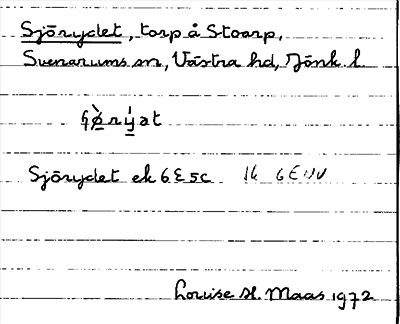 Sjörydet, torp å Stoarp,
Svenarums sn, Västra hd, Jönk. l.
Sjörydet ek 6E5c Ik 6E NV
Louise H. Maas 1972